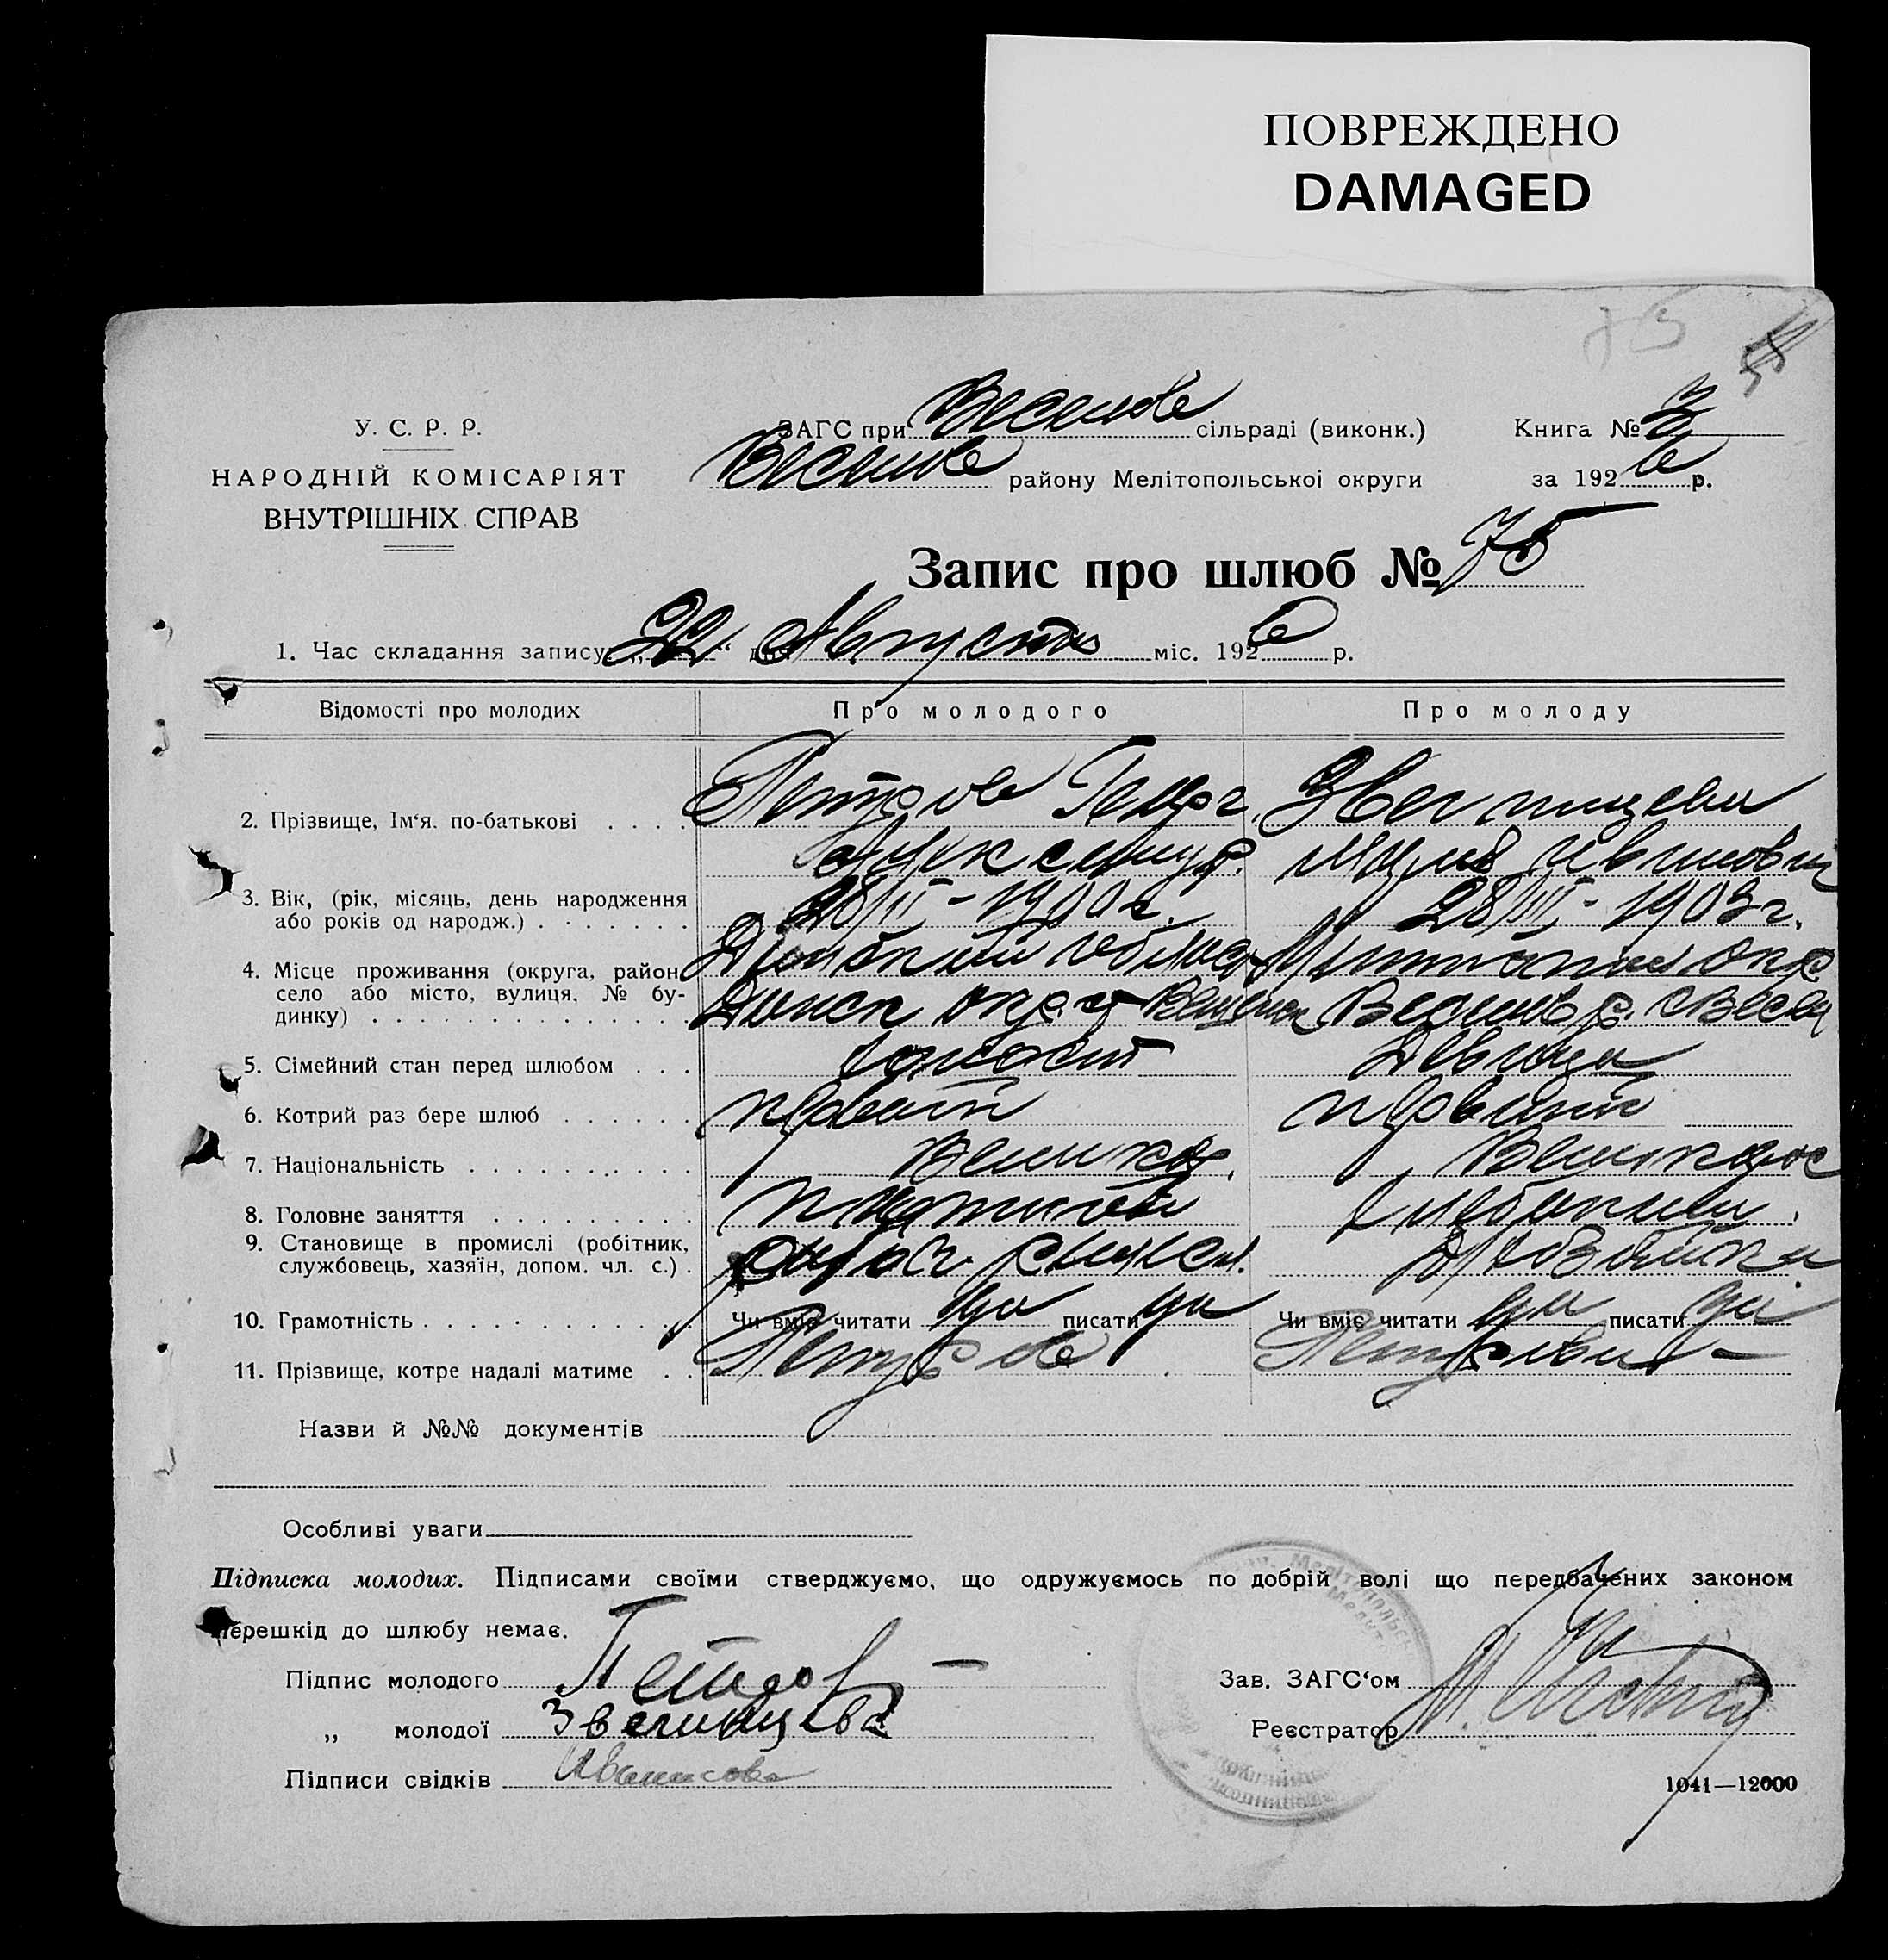 ПОВРЕЖДЕНО
DAMAGED
75
58
У. С. Р. Р.
НАРОДНІЙ КОМІСАРІЯТ
ВНУТРІШНІХ СПРАВ
ЗАГС при Веселов сільраді (виконк.)
Веселов району Мелітопольської округи
Книга № 3
за 1926 р.
Запис про шлюб № 75
1. Час складання запису „22“ дня Августа міс. 1926 р.
Відомості про молодих Про молодого Про молоду
2. Прізвище, Ім‘я. по-батькові . . . . Петров Георг. Звегинцева
Александр. Ивановна
3. Вік, (рік, місяць, день народження
або років од народж.) . . . . . . . 1900 г. 28/III - 1903 г.
4. Місце проживання (округа, район
село або місто, вулиця, № бу-
динку) . . . . . . . . . . . . . . Донск окр. Веселов р. с Весел
5. Сімейний стан перед шлюбом . . . холост Девица
6. Котрий раз бере шлюб . . . . . . первый первый
7. Національність . . . . . . . . . . Великор. Великорос
8. Головне заняття . . . . . . . . .
9. Становище в промислі (робітник,
службовець, хазяїн, допом. чл. с.) .
10. Грамотність . . . . . . . . . . . . Чи вміє читати да писати да Чи вміє читати да писати да
11. Прізвище, котре надалі матиме . . Петров Петрова
Назви й №№ документів
Особливі уваги
Підписка молодих. Підписами своїми стверджуємо, що одружуємось по добрій волі що передбачених законом
перешкід до шлюбу немає.
Підпис молодого Петров
„ молодої Звегинцева
Підписи свідків
Зав. ЗАГС‘ом
Реєстратор
1041—12000